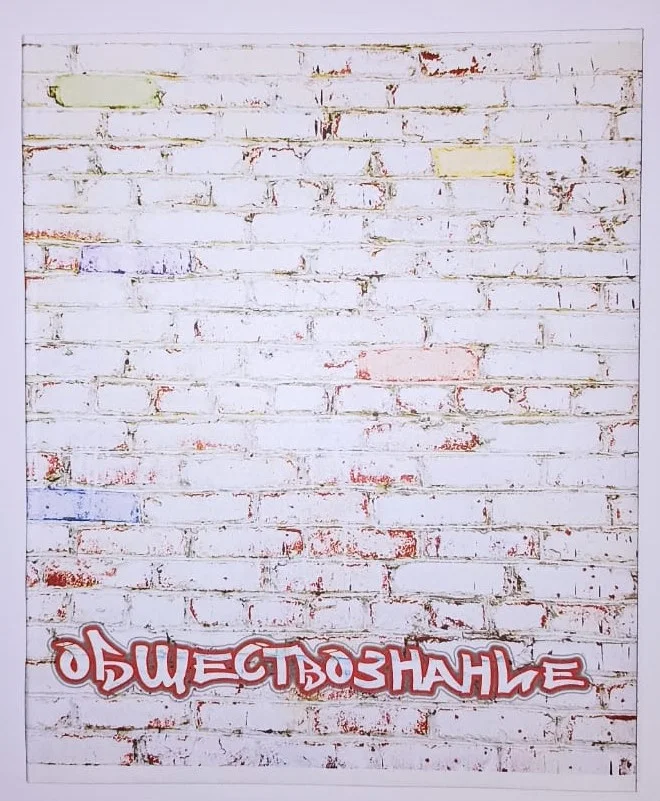 ОБЩЕСТВОЗНАНИЕ